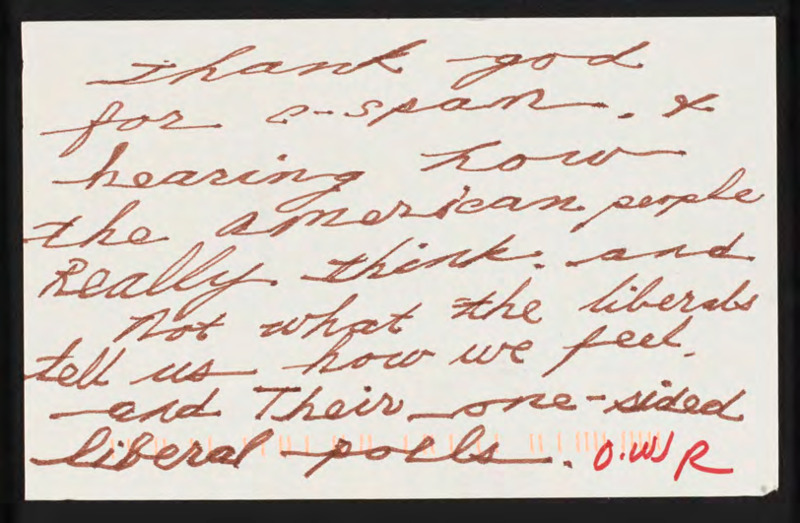 thank god
for c-span. &
hearing how
the american people
Really think. and
not what the liberals
tell us how we feel.
and Their one-sided
liberal polls. O.W.R